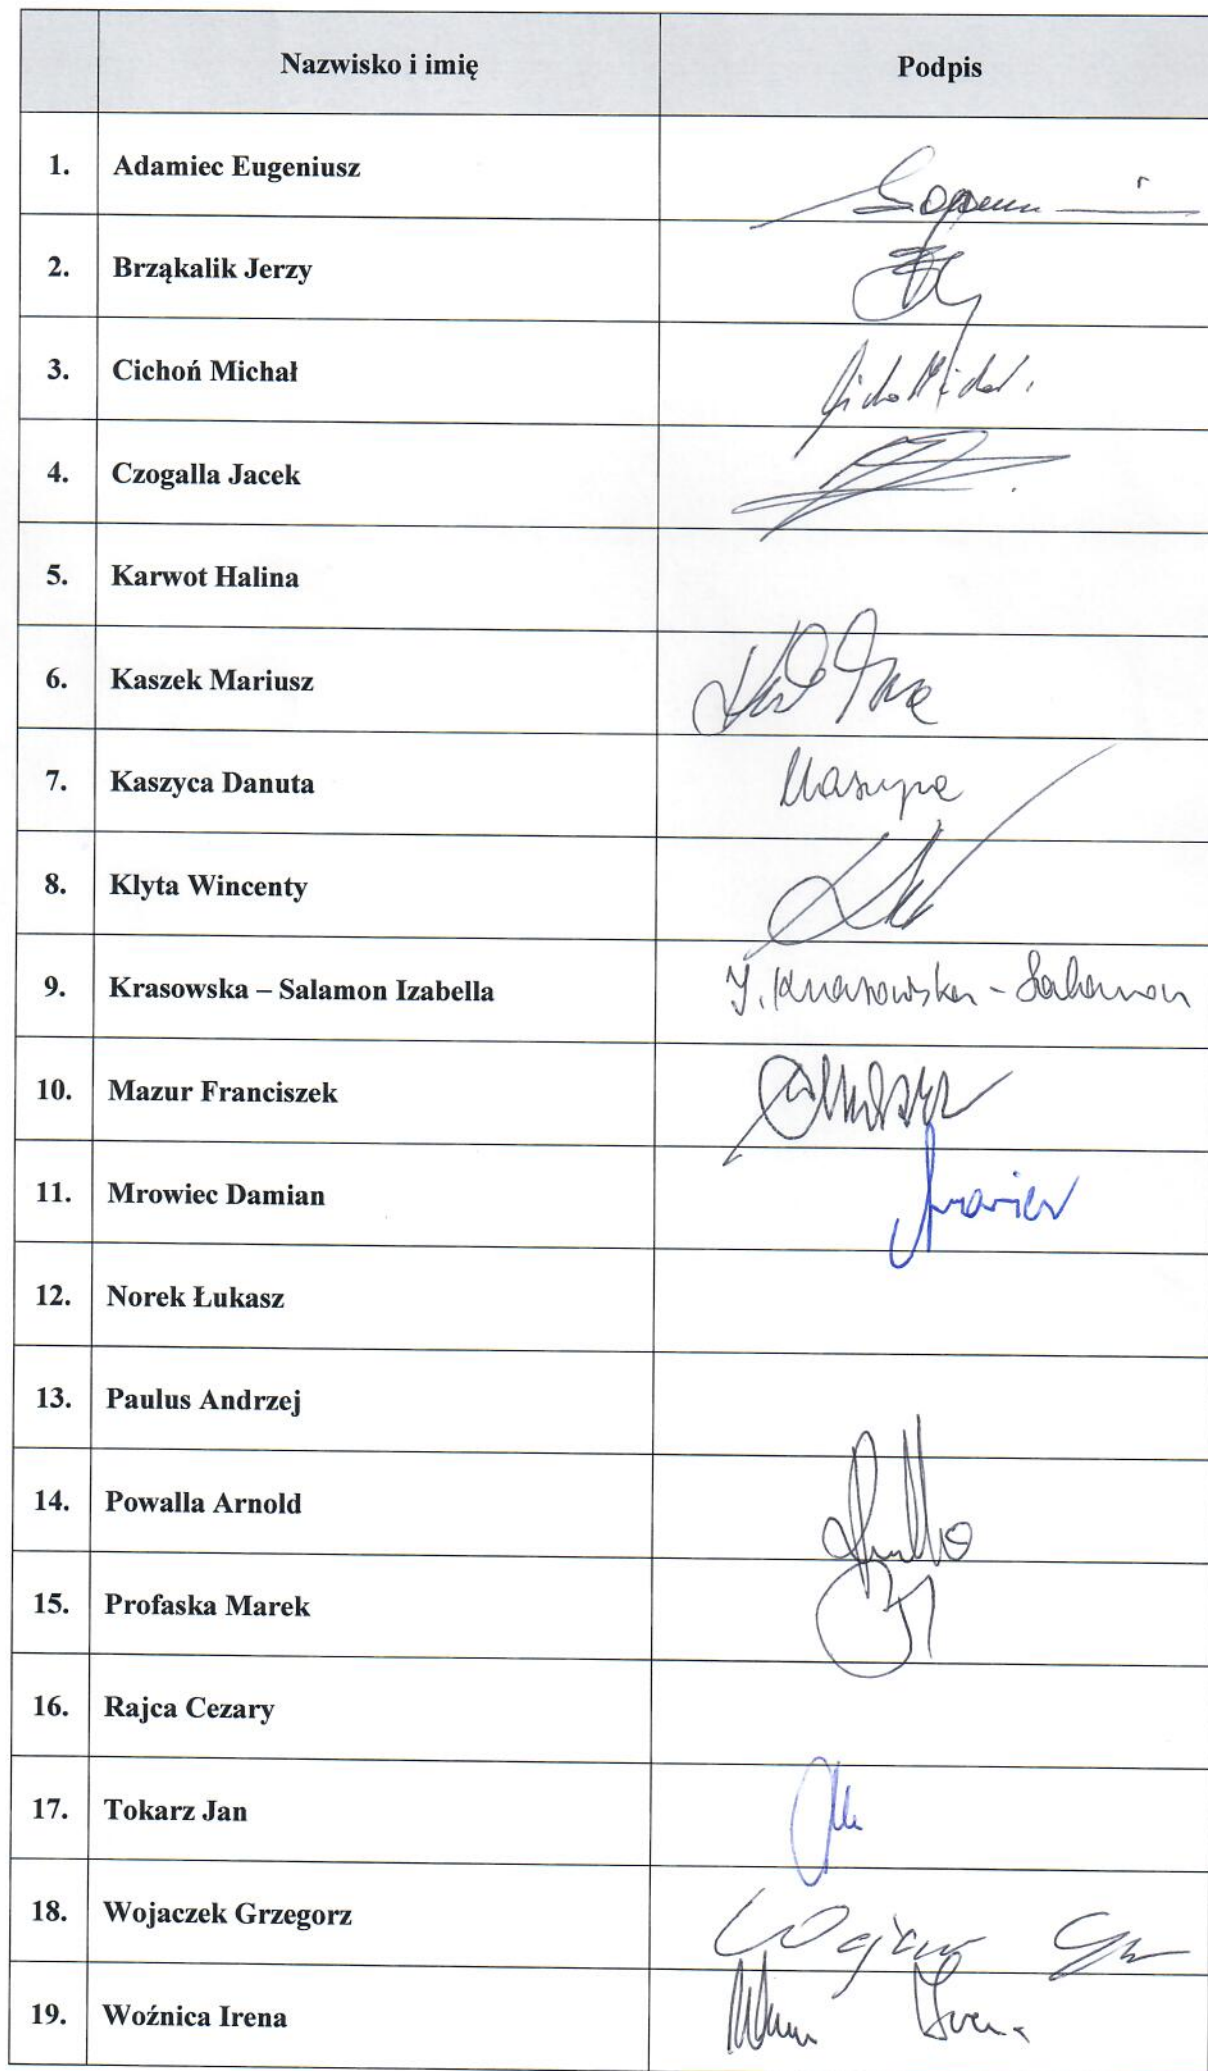 Nazwisko i imię Podpis
1. Adamiec Eugeniusz
2. Brząkalik Jerzy
3. Cichoń Michał
4. Czogalla Jacek
5. Karwot Halina
6. Kaszek Mariusz
7. Kaszyca Danuta
8. Klyta Wincenty
9. Krasowska – Salamon Izabella I. Krasowska - Salamon
10. Mazur Franciszek
11. Mrowiec Damian
12. Norek Łukasz
13. Paulus Andrzej
14. Powalla Arnold
15. Profaska Marek
16. Rajca Cezary
17. Tokarz Jan
18. Wojaczek Grzegorz
19. Woźnica Irena